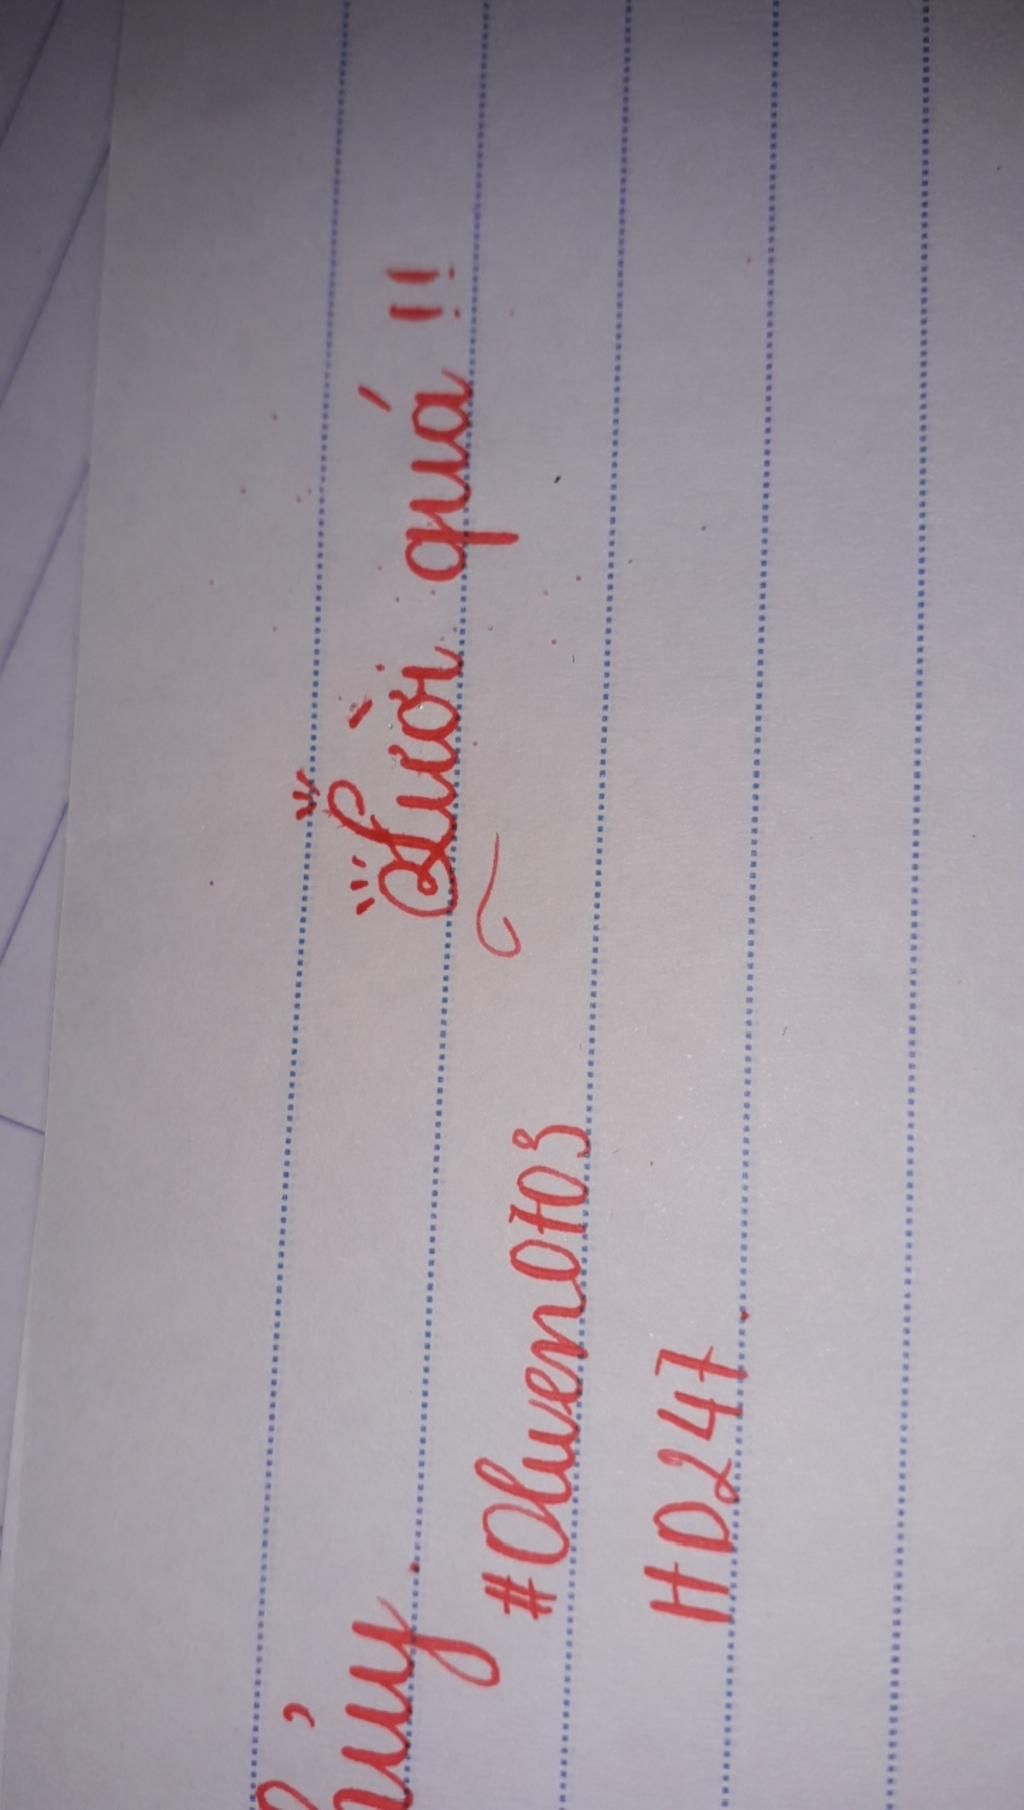 Lười quá !!
#Oliven0703
HD247.